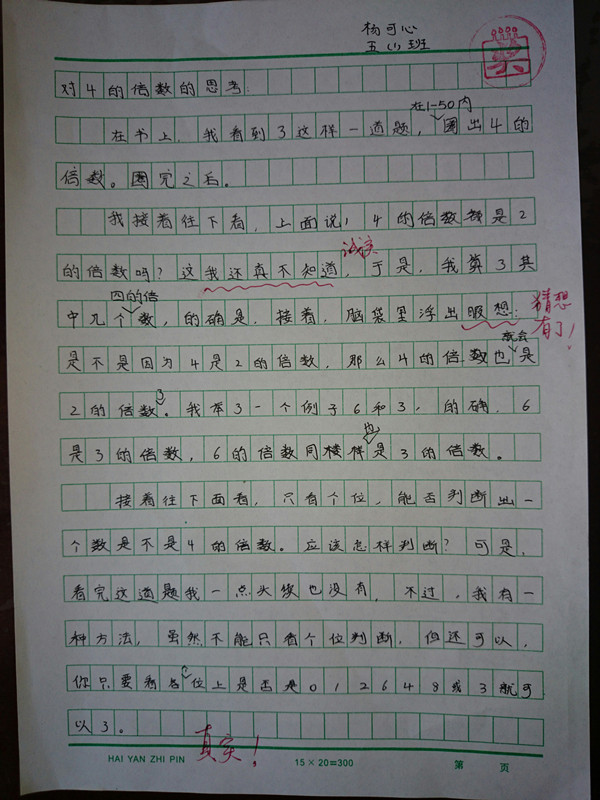 杨可心
五(1)班
对4的倍数的思考
在1-50内
在书上，我看到3这样一道题，圈出4的
倍数。圈完之后。
我接着往下看，上面说，4的倍数都是2
诚实
的倍数吗？这我还真不知道，于是，我算3其
四的倍
中几个数，的确是，接着，脑袋里浮出照想：
猜想有了！
就会
是不是因为4是2的倍数，那么4的倍数也是
2的倍数？。我举3一个例子6和3，的确，6
也
是3的倍数，6的倍数同样是3的倍数。
接着往下面看，只看个位，能否判断出一
个数是不是4的倍数。应该怎样判断？可是，
看完这道题我一点头绪也没有，不过，我有一
种方法，虽然不能只看个位判断，但还可以，
你只要看各位上是否是012648或3就可
以3。
真实！
HAI YAN ZHI PIN
15×20=300
第 页